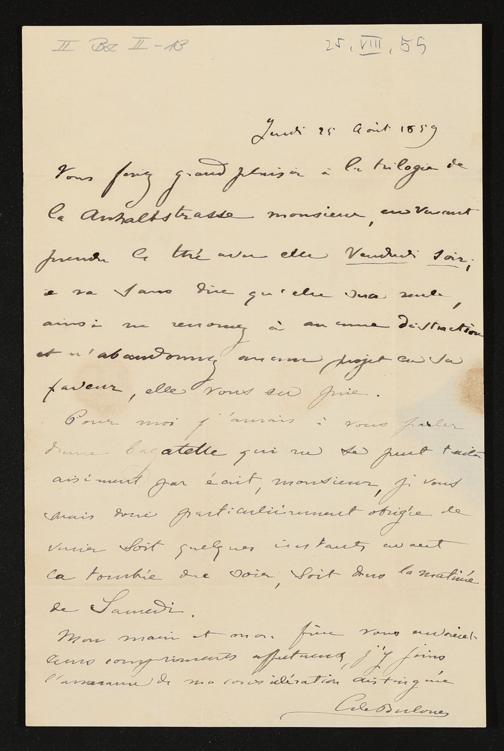 II Bc II - 13
25. VIII. 59
Jeudi 25 Août 1859
Vous ferez grand plaisir à la trilogie de
la Anhaltstrasse monsieur, en venant
prendre le thé avec elle Vendredi soir;
il va sans dire qu'elle sera seule,
ainsi ne renoncez à aucune distraction
et n'abandonnez aucun projet en sa
faveur, elle vous en prie.
Pour moi j'aurais à vous parler
d'une bagatelle qui ne se peut traiter
aisément par écrit, monsieur, je vous
serais donc particulièrement obligée de
venir soit quelques instants avant
la tombée du soir, soit dans la matinée
de Samedi.
Mon mari et mon frère vous envoient
leurs compliments affectueux, j'y joins
l'assurance de ma considération distinguée
C de Bulow